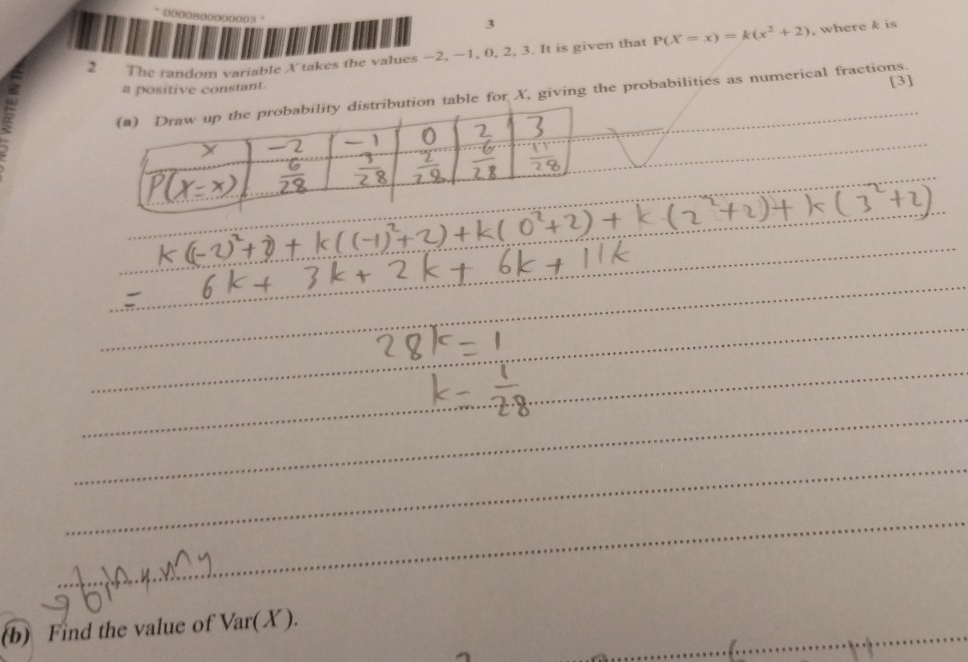 3
2 The random variable X takes the values −2, −1, 0, 2, 3. It is given that P(X = x) = k(x² + 2), where k is
a positive constant.
(a) Draw up the probability distribution table for X, giving the probabilities as numerical fractions.
[3]
x -2 -1 0 2 3
P(X=x) 6/28 3/28 2/28 6/28 11/28
k((-2)²+2) + k((-1)²+2) + k(0²+2) + k(2²+2) + k(3²+2)
= 6k + 3k + 2k + 6k + 11k
28k = 1
k = 1/28
(b) Find the value of Var(X).